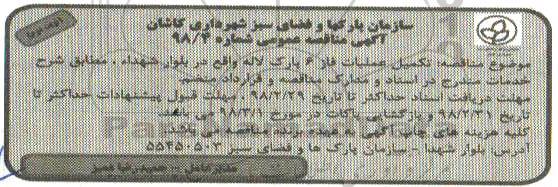 سازمان پارکها و فضای سبز شهرداری کاشان
آگهی مناقصه عمومی شماره ۹۸/۳
نوبت دوم
موضوع مناقصه: تکمیل عملیات فاز ۶ پارک لاله واقع در بلوار شهداء ، مطابق شرح
خدمات مندرج در اسناد و مدارک مناقصه و قرارداد منضم.
مهلت دریافت اسناد حداکثر تا تاریخ ۹۸/۲/۲۹ ، مهلت قبول پیشنهادات حداکثر تا
تاریخ ۹۸/۲/۳۱ و بازگشایی پاکات در مورخ ۹۸/۳/۱ می باشد.
کلیه هزینه های چاپ آگهی به عهده برنده مناقصه می باشد.
آدرس: بلوار شهدا - سازمان پارک ها و فضای سبز ۵۵۴۵۰۵۰۳
مدیرعامل - حمیدرضا ممیز